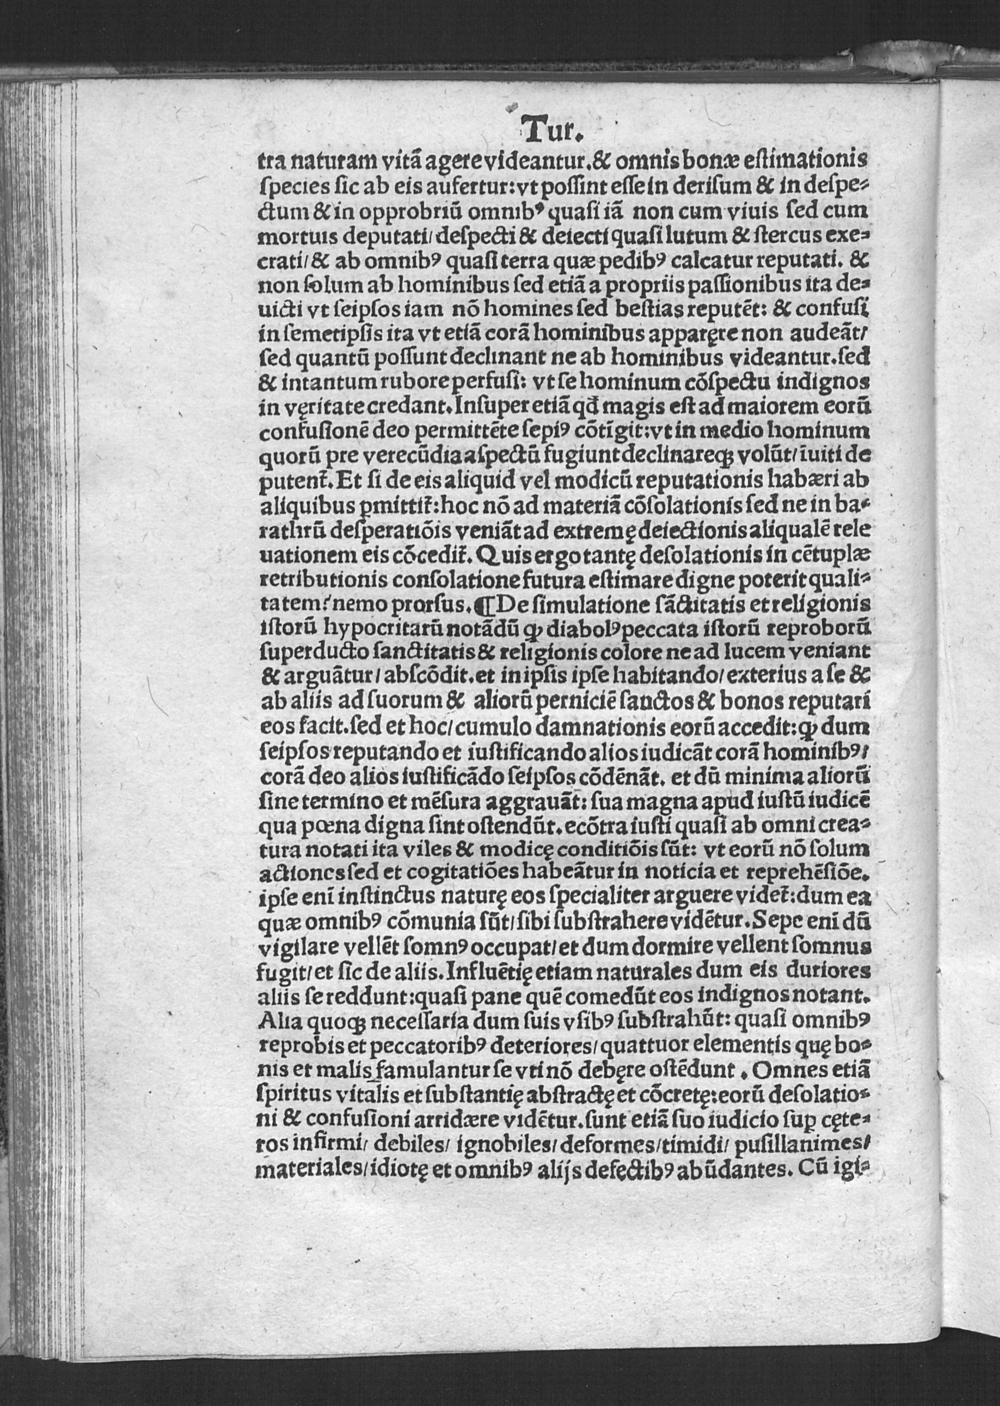 Tur.
tra naturam vitā agere videantur.& omnis bonæ estimationis
species sic ab eis aufertur:vt possint esse in derisum & in despe-
ctum & in opprobriū omnibꝰ quasi iā non cum viuis sed cum
mortuis deputati/despecti & deiecti quasi lutum & stercus exe-
crati/& ab omnibꝰ quasi terra quæ pedibꝰ calcatur reputati. &
non solum ab hominibus sed etiā a propriis passionibus ita de-
uicti vt seipsos iam nō homines sed bestias reputēt: & confusi
in semetipsis ita vt etiā corā hominibus apparęre non audeāt/
sed quantū possunt declinant ne ab hominibus videantur.sed
& intantum rubore perfusi: vt se hominum cōspectu indignos
in vęritate credant.Insuper etiā qđ magis est ad maiorem eorū
confusionē deo permittēte sepiꝰ cōtīgit:vt in medio hominum
quorū pre verecūdia aspectū fugiunt declinareqꝫ volūt/īuiti de
putent᷑.Et si de eis aliquid vel modicū reputationis habæri ab
aliquibus ꝑmittit᷑:hoc nō ad materiā cōsolationis sed ne in ba-
rathrū desperatiōis veniāt ad extremę deiectionis aliqualē rele
uationem eis cōcedit᷑.Quis ergo tantę desolationis in cētuplæ
retributionis consolatione futura estimare digne poterit quali-
tatem?nemo prorsus.¶De simulatione sāctitatis et religionis
istorū hypocritarū notādū ꝙ diabolꝰ peccata istorū reproborū
superducto sanctitatis & religionis colore ne ad lucem veniant
& arguātur/abscōdit.et in ipsis ipse habitando/exterius a se &
ab aliis ad suorum & aliorū perniciē sanctos & bonos reputari
eos facit.sed et hoc/cumulo damnationis eorū accedit:ꝙ dum
seipsos reputando et iustificando alios iudicāt corā hominibꝰ/
corā deo alios iustificādo seipsos cōdēnāt. et dū minima aliorū
sine termino et mēsura aggrauāt: sua magna apud iustū iudicē
qua pœna digna sint ostendūt.ecōtra iusti quasi ab omni crea-
tura notati ita viles & modicę conditiōis sūt: vt eorū nō solum
actiones sed et cogitatiōes habeātur in noticia et reprehēsiōe.
ipse enī instinctus naturę eos specialiter arguere videt᷑:dum ea
quæ omnibꝰ cōmunia sūt/sibi substrahere vidētur.Sepe enī dū
vigilare vellēt somnꝰ occupat/et dum dormire vellent somnus
fugit/et sic de aliis.Influētię etiam naturales dum eis duriores
aliis se reddunt:quasi pane quē comedūt eos indignos notant.
Alia quoqꝫ necessaria dum suis vsibꝰ substrahūt: quasi omnibꝰ
reprobis et peccatoribꝰ deteriores/quattuor elementis quę bo-
nis et malis famulantur se vti nō debęre ostēdunt . Omnes etiā
spiritus vitalis et substantię abstractę et cōcretę:eorū desolatio-
ni & confusioni arridære vidētur.sunt etiā suo iudicio suꝑ cęte-
ros infirmi/ debiles/ ignobiles/deformes/timidi/ pusillanimes/
materiales/idiotę et omnibꝰ alijs defęctibꝰ abūdantes. Cū igi-